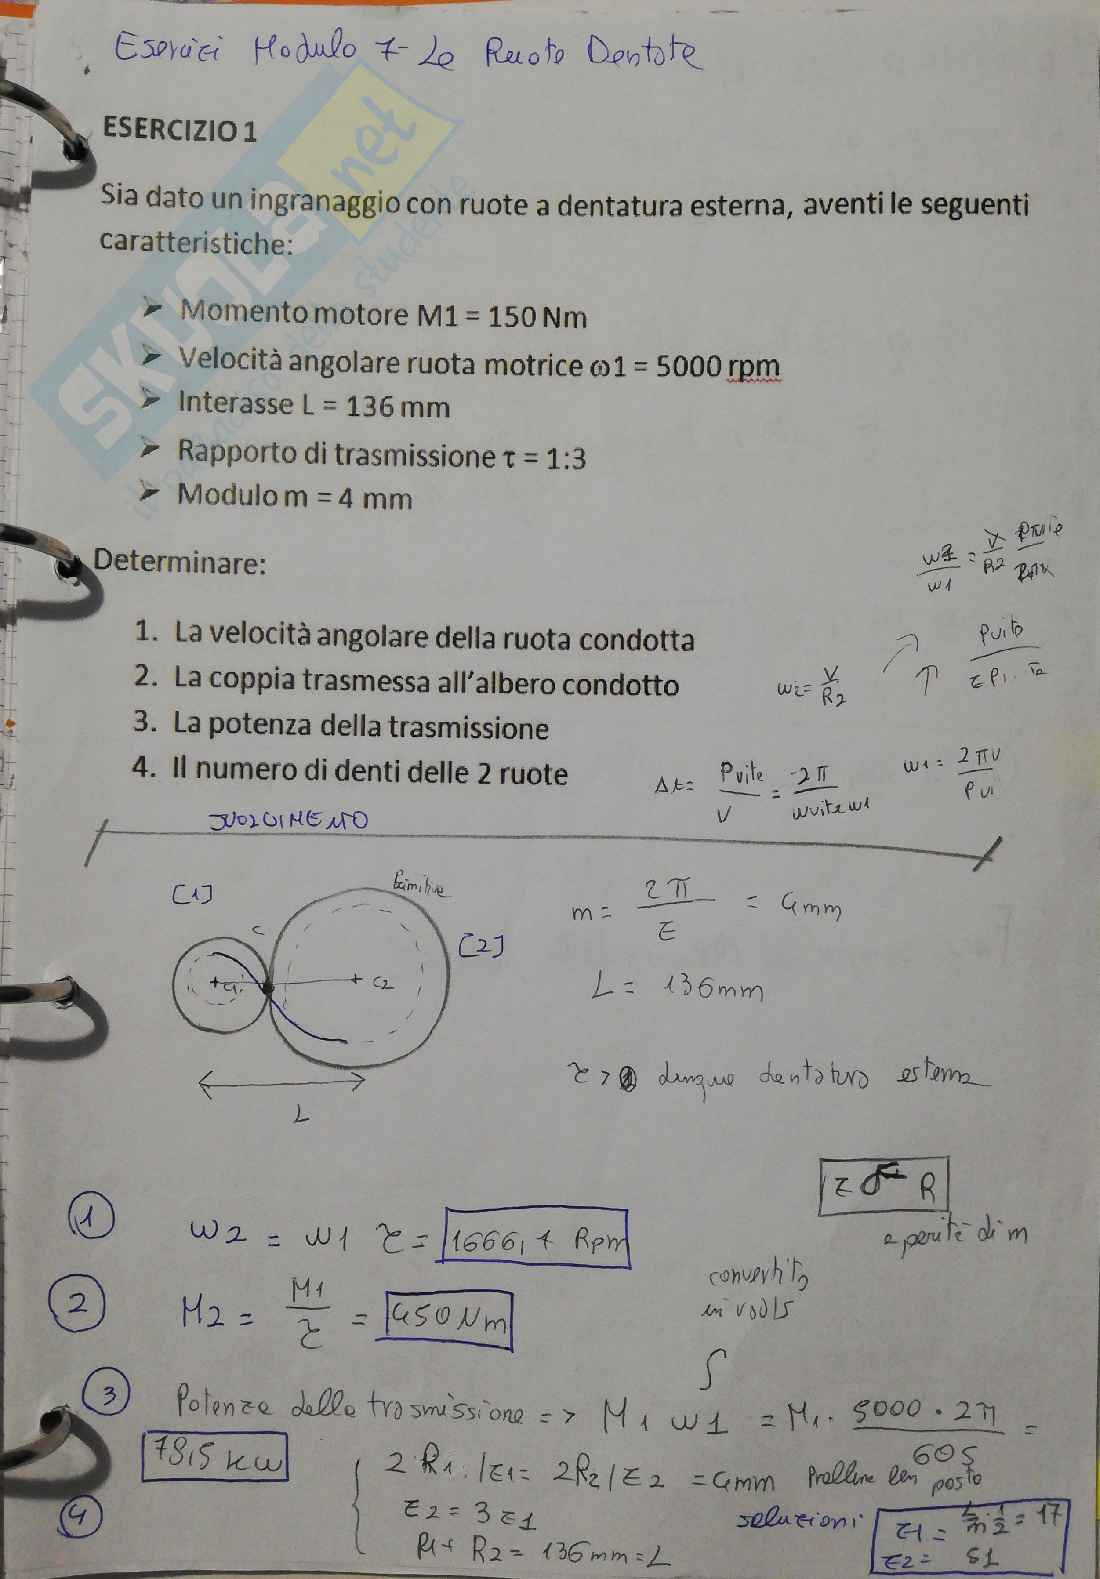 Esercizi Modulo 7- Le Ruote Dentate
ESERCIZIO 1
Sia dato un ingranaggio con ruote a dentatura esterna, aventi le seguenti
caratteristiche:
➢ Momento motore M1 = 150 Nm
➢ Velocità angolare ruota motrice ω1 = 5000 rpm
➢ Interasse L = 136 mm
➢ Rapporto di trasmissione τ = 1:3
➢ Modulo m = 4 mm
Determinare:
1. La velocità angolare della ruota condotta
2. La coppia trasmessa all'albero condotto
3. La potenza della trasmissione
4. Il numero di denti delle 2 ruote
SKUOLA.net
ω2 = V/R2
Δt = Pvite/V = 2π/ωvite ω1
ω1 = 2πV/Pvi
SVOLGIMENTO
[1]
Primitive
C
[2]
C1
C2
L
m = 2π/z = 4mm
L = 136mm
τ > 0 dunque dentatura esterna
z R
a parità di m
1 ω2 = ω1 τ = 1666,7 Rpm
2 M2 = M1/τ = 450 Nm
convertito
in rad/s
3 Potenza della trasmissione => M1 ω1 = M1 · 5000 · 2π / 60s =
78,5 kW
4
2 R1/z1 = 2R2/z2 = 4mm Problema ben posto
z2 = 3 z1
R1 + R2 = 136mm = L
soluzioni
z1 = L/m · 1/2 = 17
z2 = 51